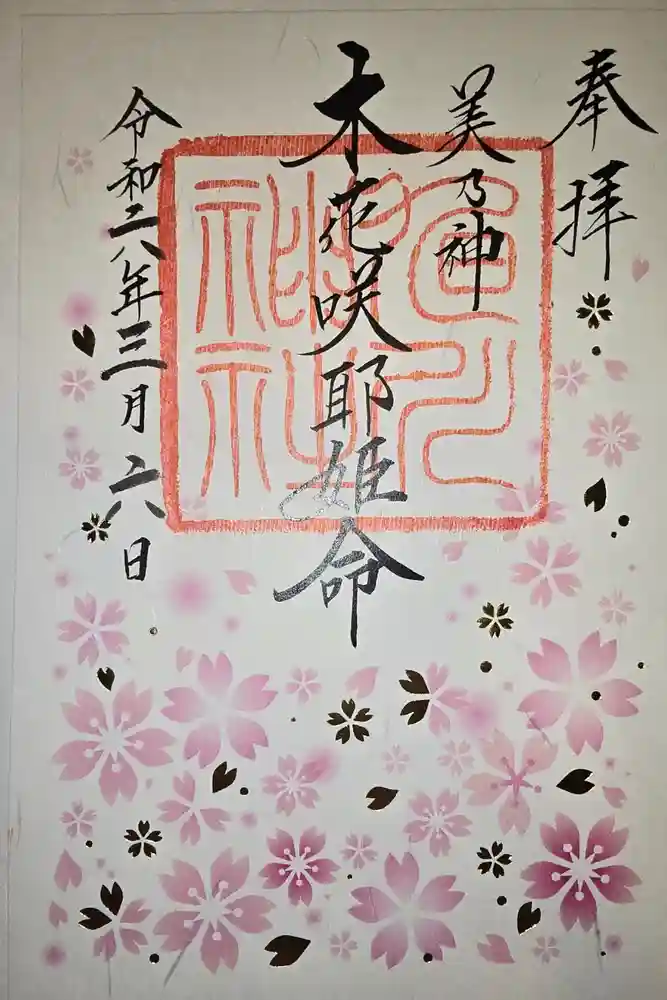 奉拝
美乃神
木花咲耶姫命
令和六年三月六日
神社